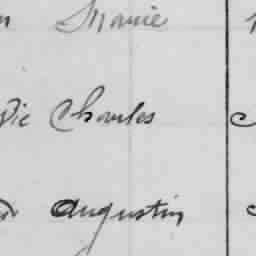 Marie
Charles
Augustin